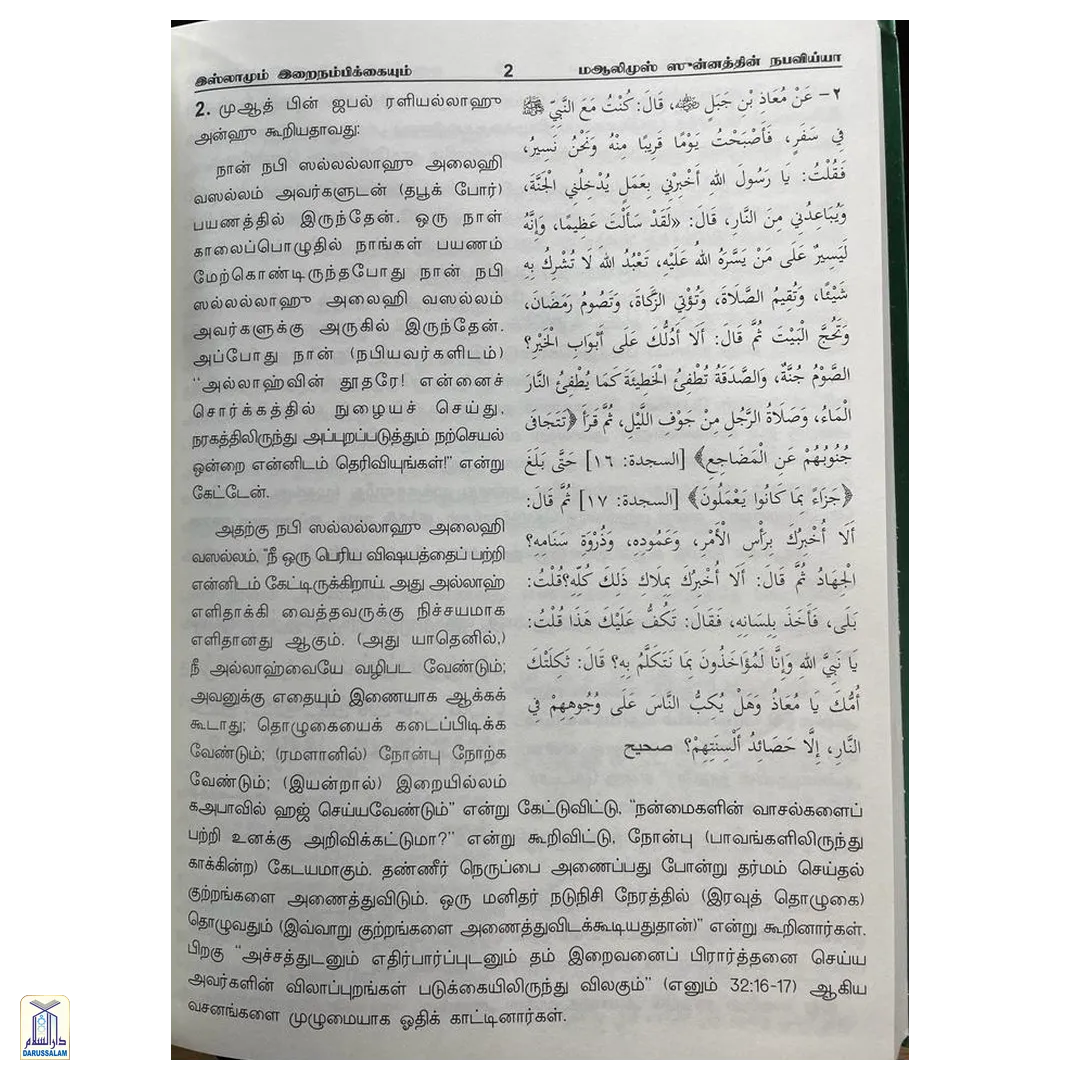 இஸ்லாமும் இறைநம்பிக்கையும் 2 மஆலிமுஸ் ஸுன்னத்தின் நபவிய்யா
2. முஆத் பின் ஜபல் ரளியல்லாஹு
அன்ஹு கூறியதாவது:
நான் நபி ஸல்லல்லாஹு அலைஹி
வஸல்லம் அவர்களுடன் (தபூக் போர்)
பயணத்தில் இருந்தேன். ஒரு நாள்
காலைப்பொழுதில் நாங்கள் பயணம்
மேற்கொண்டிருந்தபோது நான் நபி
ஸல்லல்லாஹு அலைஹி வஸல்லம்
அவர்களுக்கு அருகில் இருந்தேன்.
அப்போது நான் (நபியவர்களிடம்)
“அல்லாஹ்வின் தூதரே! என்னைச்
சொர்க்கத்தில் நுழையச் செய்து,
நரகத்திலிருந்து அப்புறப்படுத்தும் நற்செயல்
ஒன்றை என்னிடம் தெரிவியுங்கள்!” என்று
கேட்டேன்.
அதற்கு நபி ஸல்லல்லாஹு அலைஹி
வஸல்லம், “நீ ஒரு பெரிய விஷயத்தைப் பற்றி
என்னிடம் கேட்டிருக்கிறாய். அது அல்லாஹ்
எளிதாக்கி வைத்தவருக்கு நிச்சயமாக
எளிதானது ஆகும். (அது யாதெனில்,)
நீ அல்லாஹ்வையே வழிபட வேண்டும்;
அவனுக்கு எதையும் இணையாக ஆக்கக்
கூடாது; தொழுகையைக் கடைப்பிடிக்க
வேண்டும்; (ரமளானில்) நோன்பு நோற்க
வேண்டும்; (இயன்றால்) இறையில்லம்
٢– عَنْ مُعَاذِ بْنِ جَبَلٍ ﷺ، قَالَ: كُنْتُ مَعَ النَّبِيِّ ﷺ
فِي سَفَرٍ، فَأَصْبَحْتُ يَوْمًا قَرِيبًا مِنْهُ وَنَحْنُ نَسِيرُ،
فَقُلْتُ: يَا رَسُولَ اللهِ أَخْبِرْنِي بِعَمَلٍ يُدْخِلُنِي الْجَنَّةَ،
وَيُبَاعِدُنِي مِنَ النَّارِ، قَالَ: «لَقَدْ سَأَلْتَ عَظِيمًا، وَإِنَّهُ
لَيَسِيرٌ عَلَى مَنْ يَسَّرَهُ اللهُ عَلَيْهِ، تَعْبُدُ اللهَ لَا تُشْرِكُ بِهِ
شَيْئًا، وَتُقِيمُ الصَّلَاةَ، وَتُؤْتِي الزَّكَاةَ، وَتَصُومُ رَمَضَانَ،
وَتَحُجَّ الْبَيْتَ ثُمَّ قَالَ: أَلَا أَدُلُّكَ عَلَى أَبْوَابِ الْخَيْرِ؟
الصَّوْمُ جُنَّةٌ، وَالصَّدَقَةُ تُطْفِئُ الْخَطِيئَةَ كَمَا يُطْفِئُ النَّارَ
الْمَاءُ، وَصَلَاةُ الرَّجُلِ مِنْ جَوْفِ اللَّيْلِ، ثُمَّ قَرَأَ ﴿تَتَجَافَى
جُنُوبُهُمْ عَنِ الْمَضَاجِعِ﴾ [السجدة: ١٦] حَتَّى بَلَغَ
﴿جَزَاءً بِمَا كَانُوا يَعْمَلُونَ﴾ [السجدة: ١٧] ثُمَّ قَالَ:
أَلَا أُخْبِرُكَ بِرَأْسِ الْأَمْرِ، وَعَمُودِهِ، وَذُرْوَةِ سَنَامِهِ؟
الْجِهَادُ ثُمَّ قَالَ: أَلَا أُخْبِرُكَ بِمِلَاكِ ذَلِكَ كُلِّهِ؟قُلْتُ:
بَلَى، فَأَخَذَ بِلِسَانِهِ، فَقَالَ: تَكُفُّ عَلَيْكَ هَذَا قُلْتُ:
يَا نَبِيَّ اللهِ وَإِنَّا لَمُؤَاخَذُونَ بِمَا نَتَكَلَّمُ بِهِ؟ قَالَ: ثَكِلَتْكَ
أُمُّكَ يَا مُعَاذُ وَهَلْ يُكِبُّ النَّاسَ عَلَى وُجُوهِهِمْ فِي
النَّارِ، إِلَّا حَصَائِدُ أَلْسِنَتِهِمْ؟ صحيح
கஅபாவில் ஹஜ் செய்யவேண்டும்” என்று கேட்டுவிட்டு, “நன்மைகளின் வாசல்களைப்
பற்றி உனக்கு அறிவிக்கட்டுமா?” என்று கூறிவிட்டு, நோன்பு (பாவங்களிலிருந்து
காக்கின்ற) கேடயமாகும். தண்ணீர் நெருப்பை அணைப்பது போன்று தர்மம் செய்தல்
குற்றங்களை அணைத்துவிடும். ஒரு மனிதர் நடுநிசி நேரத்தில் (இரவுத் தொழுகை)
தொழுவதும் (இவ்வாறு குற்றங்களை அணைத்துவிடக்கூடியதுதான்)” என்று கூறினார்கள்.
பிறகு “அச்சத்துடனும் எதிர்பார்ப்புடனும் தம் இறைவனைப் பிரார்த்தனை செய்ய
அவர்களின் விலாப்புறங்கள் படுக்கையிலிருந்து விலகும்” (எனும் 32:16-17) ஆகிய
வசனங்களை முழுமையாக ஓதிக் காட்டினார்கள்.
دارالسلام
DARUSSALAM